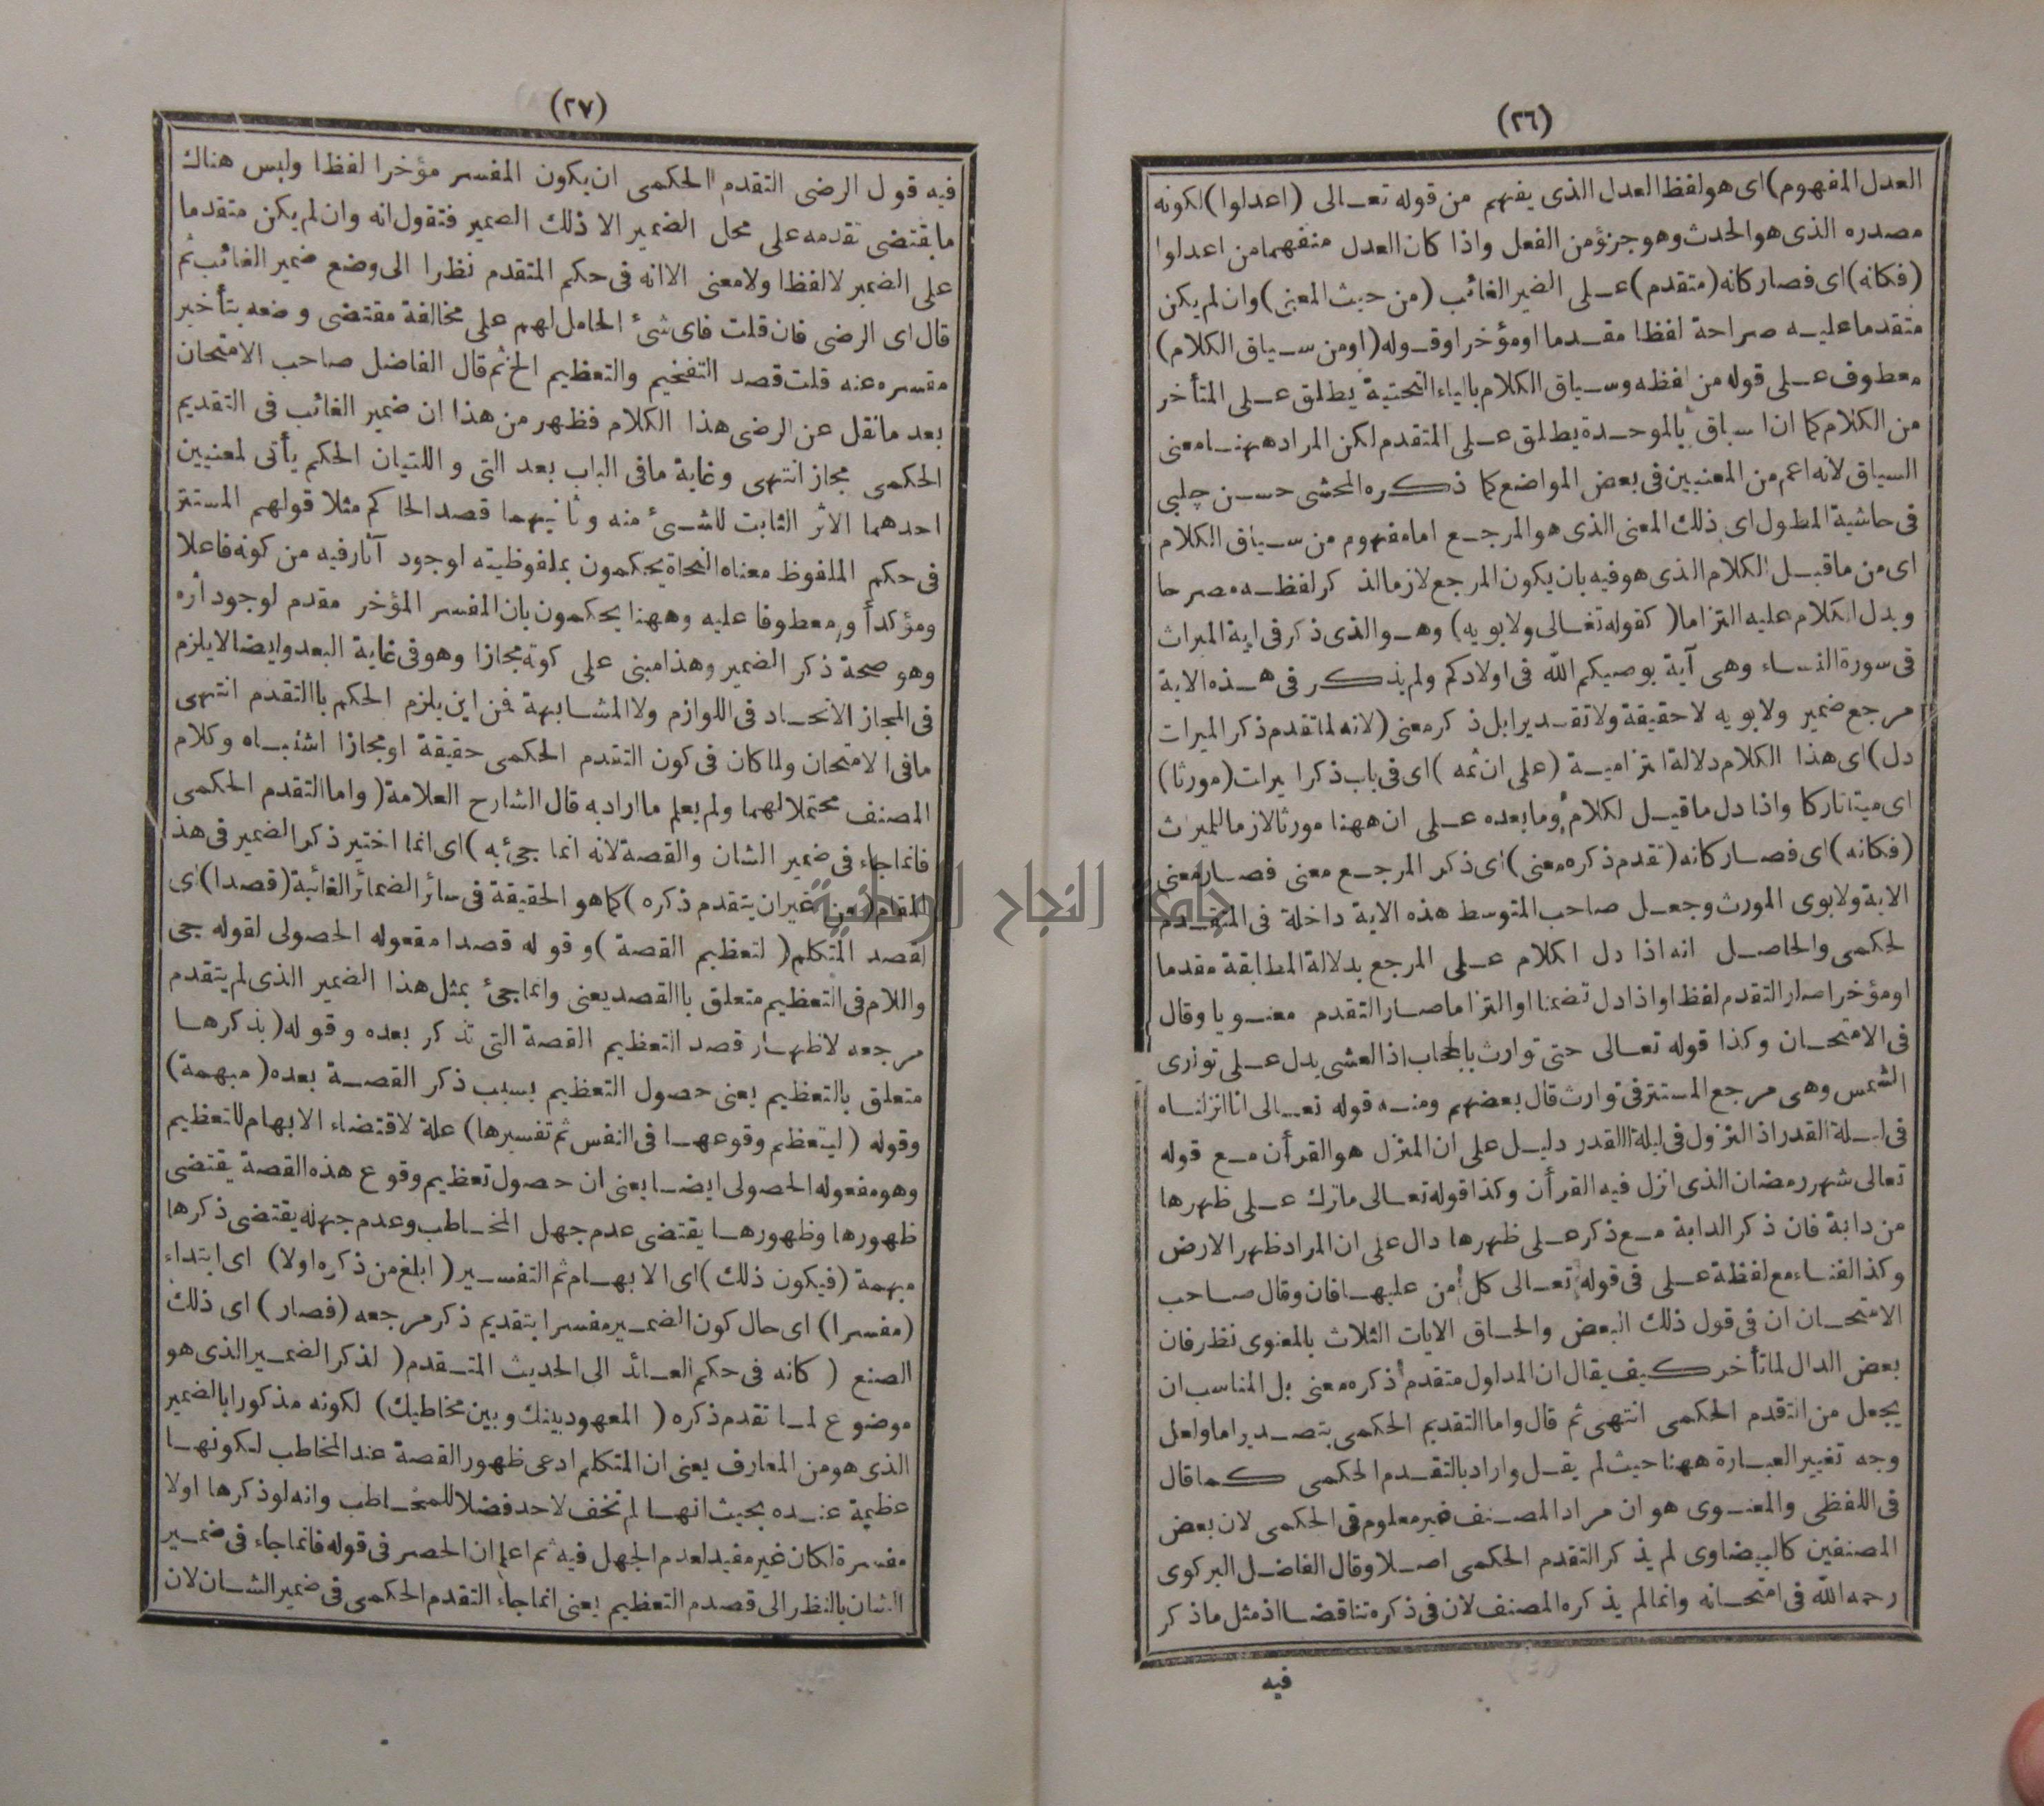 (٢٦)
العدل المفهوم) اى هو لفظ العدل الذى يفهم من قوله تعالى (اعدلوا) لكونه
مصدره الذى هو الحدث وهو جزؤ من الفعل واذا كان العدل منفهما من اعدلوا
(فكانه) اى فصار كانه (متقدم) على الضمير الغائب (من حيث المعنى) وان لم يكن
متقدما عليه صراحة لفظا مقدما او مؤخرا وقوله (او من سياق الكلام)
معطوف على قوله من لفظه وسياق الكلام بالياء التحتية يطلق على المتأخر
من الكلام كما ان اسباق بالموحدة يطلق على المتقدم لكن المراد ههنا معنى
السياق لانه اعم من المعنيين فى بعض المواضع كما ذكره المحشى حسن چلبى
فى حاشية المطول اى ذلك المعنى الذى هو المرجع اما مفهوم من سياق الكلام
اى من ما قبل الكلام الذى هو فيه بان يكون المرجع لازما لذ كر لفظه مصرحا
ويدل الكلام عليه التزاما (كقوله تعالى ولابويه) وهو الذى ذكر فى اية الميراث
فى سورة النساء وهى آية يوصيكم الله فى اولادكم ولم يذكر فى هذه الاية
مرجع ضمير ولابويه لا حقيقة ولا تقديرا بل ذكر معنى (لانه لما تقدم ذكر الميرات
دل) اى هذا الكلام دلالة التزامية (على ان ثمه) اى فى باب ذكر ايرات (مورثا)
اى ميتا تاركا واذا دل ما قيل لكلام وما بعده على ان ههنا مورثا لازما للميراث
(فكانه) اى فصار كانه (تقدم ذكره معنى) اى ذكر المرجع معنى فصار معنى
الاية ولابوى المورث وجعل صاحب المتوسط هذه الاية داخلة فى المتقدم
لحكمى والحاصل انه اذا دل اكلام على المرجع بدلالة المطابقة مقدما
او مؤخرا صار التقدم لفظا واذا دل تضمنا او التزاما صار التقدم معنويا وقال
فى الامتحان وكذا قوله تعالى حتى توارث بالحجاب اذ العشى يدل على توارى
الشمس وهى مرجع المستتر فى توارث قال بعضهم ومنه قوله تعالى انا انزلناه
فى ليلة القدر اذ النزول فى ليلة القدر دليل على ان المنزل هو القرأن مع قوله
تعالى شهر رمضان الذى انزل فيه القرأن وكذا قوله تعالى ماترك على ظهرها
من دابة فان ذكر الدابة مع ذكر على ظهرها دال على ان المراد ظهر الارض
وكذا الفناء مع لفظة على فى قوله تعالى كل من عليها فان وقال صاحب
الامتحان ان فى قول ذلك البعض والحاق الايات الثلاث بالمعنوى نظر فان
بعض الدال لما تأخر كيف يقال ان المدلول متقدم ذكره معنى بل المناسب ان
يجعل من التقدم الحكمى انتهى ثم قال واما التقديم الحكمى بتصدير اما ولعل
وجه تغيير العبارة ههنا حيث لم يقل واراد بالتقدم الحكمى كما قال
فى اللفظى والمعنوى هو ان مراد المصنف غير معلوم فى الحكمى لان بعض
المصنفين كالبيضاوى لم يذكر التقدم الحكمى اصلا وقال الفاضل البركوى
رحمه الله فى امتحانه وانما لم يذكره المصنف لان فى ذكره تناقضا اذ مثل ما ذكر
فيه
(٢٧)
فيه قول الرضى التقدم الحكمى ان يكون المفسر مؤخرا لفظا وليس هناك
ما يقتضى تقدمه على محل الضمير الا ذلك الضمير فتقول انه وان لم يكن متقدما
على الضمير لا لفظا ولا معنى الا انه فى حكم المتقدم نظرا الى وضع ضمير الغائب ثم
قال اى الرضى فان قلت فاى شئ الحامل لهم على مخالفة مقتضى وضعه بتأخير
مفسره عنه قلت قصد التفخيم والتعظيم الخ ثم قال الفاضل صاحب الامتحان
بعد ما نقل عن الرضى هذا الكلام فظهر من هذا ان ضمير الغائب فى التقديم
الحكمى مجاز انتهى وغاية ما فى الباب بعد التى واللتيان الحكم يأتى لمعنيين
احدهما الاثر الثابت للشئ منه وثانيهما قصد الحاكم مثلا قولهم المستتر
فى حكم الملفوظ معناه النحاة يحكمون بملفوظيته لوجود آثار فيه من كونه فاعلا
ومؤكدأ ومعطوفا عليه وههنا يحكمون بان المفسر المؤخر مقدم لوجود أره
وهو صحة ذكر الضمير وهذا مبنى على كونه مجازا وهو فى غاية البعد وايضا لا يلزم
فى المجاز الاتحاد فى اللوازم ولا المشابهة فمن اين يلزم الحكم باالتقدم انتهى
ما فى الامتحان ولما كان فى كون التقدم الحكمى حقيقة او مجازا اشتباه وكلام
المصنف محتملا لهما ولم يعلم ما اراد به قال الشارح العلامة (واما التقدم الحكمى
فانما جاء فى ضمير الشان والقصة لانه انما جئ به) اى انما اختير ذكر الضمير فى هذ
المقام (من غير ان يتقدم ذكره) كما هو الحقيقة فى سائر الضمائر الغائبة (قصدا) اى
لقصد المتكلم (لتعظيم القصة) وقوله قصدا مفعوله الحصولى لقوله جى
واللام فى التعظيم متعلق باالقصد يعنى وانما جئ بمثل هذا الضمير الذى لم يتقدم
مرجعه لاظهار قصد التعظيم القصة التى تذكر بعده وقوله (بذكرها
متعلق بالتعظيم يعنى حصول التعظيم بسبب ذكر القصة بعده (مبهمة)
وقوله (ليتعظم وقوعها فى النفس ثم تفسيرها) علة لاقتضاء الابهام للتعظيم
وهو مفعوله الحصولى ايضا يعنى ان حصول تعظيم وقوع هذه القصة يقتضى
ظهورها وظهورها يقتضى عدم جهل المخاطب وعدم جهله يقتضى ذكرها
مبهمة (فيكون ذلك) اى الابهام ثم التفسير (ابلغ من ذكره اولا) اى ابتداء
(مفسرا) اى حال كون الضمير مفسرا بتقديم ذكر مرجعه (فصار) اى ذلك
الصنع (كانه فى حكم العائد الى الحديث المتقدم) لذكر الضمير الذى هو
موضوع لما تقدم ذكره (المعهود بينك وبين مخاطبك) لكونه مذكورا بالضمير
الذى هو من المعارف يعنى ان المتكلم ادعى ظهور القصة عند المخاطب لكونها
عظيمة عنده بحيث انها لم تخف لاحد فضلا للمخاطب وانه لو ذكرها اولا
مفسرة لكان غير مفيد لعدم الجهل فيه ثم اعلم ان الحصر فى قوله فانما جاء فى ضمير
الشان بالنظر الى قصدم التعظيم يعنى انما جاء التقدم الحكمى فى ضمير الشان لان
جامعة النجاح الوطنية